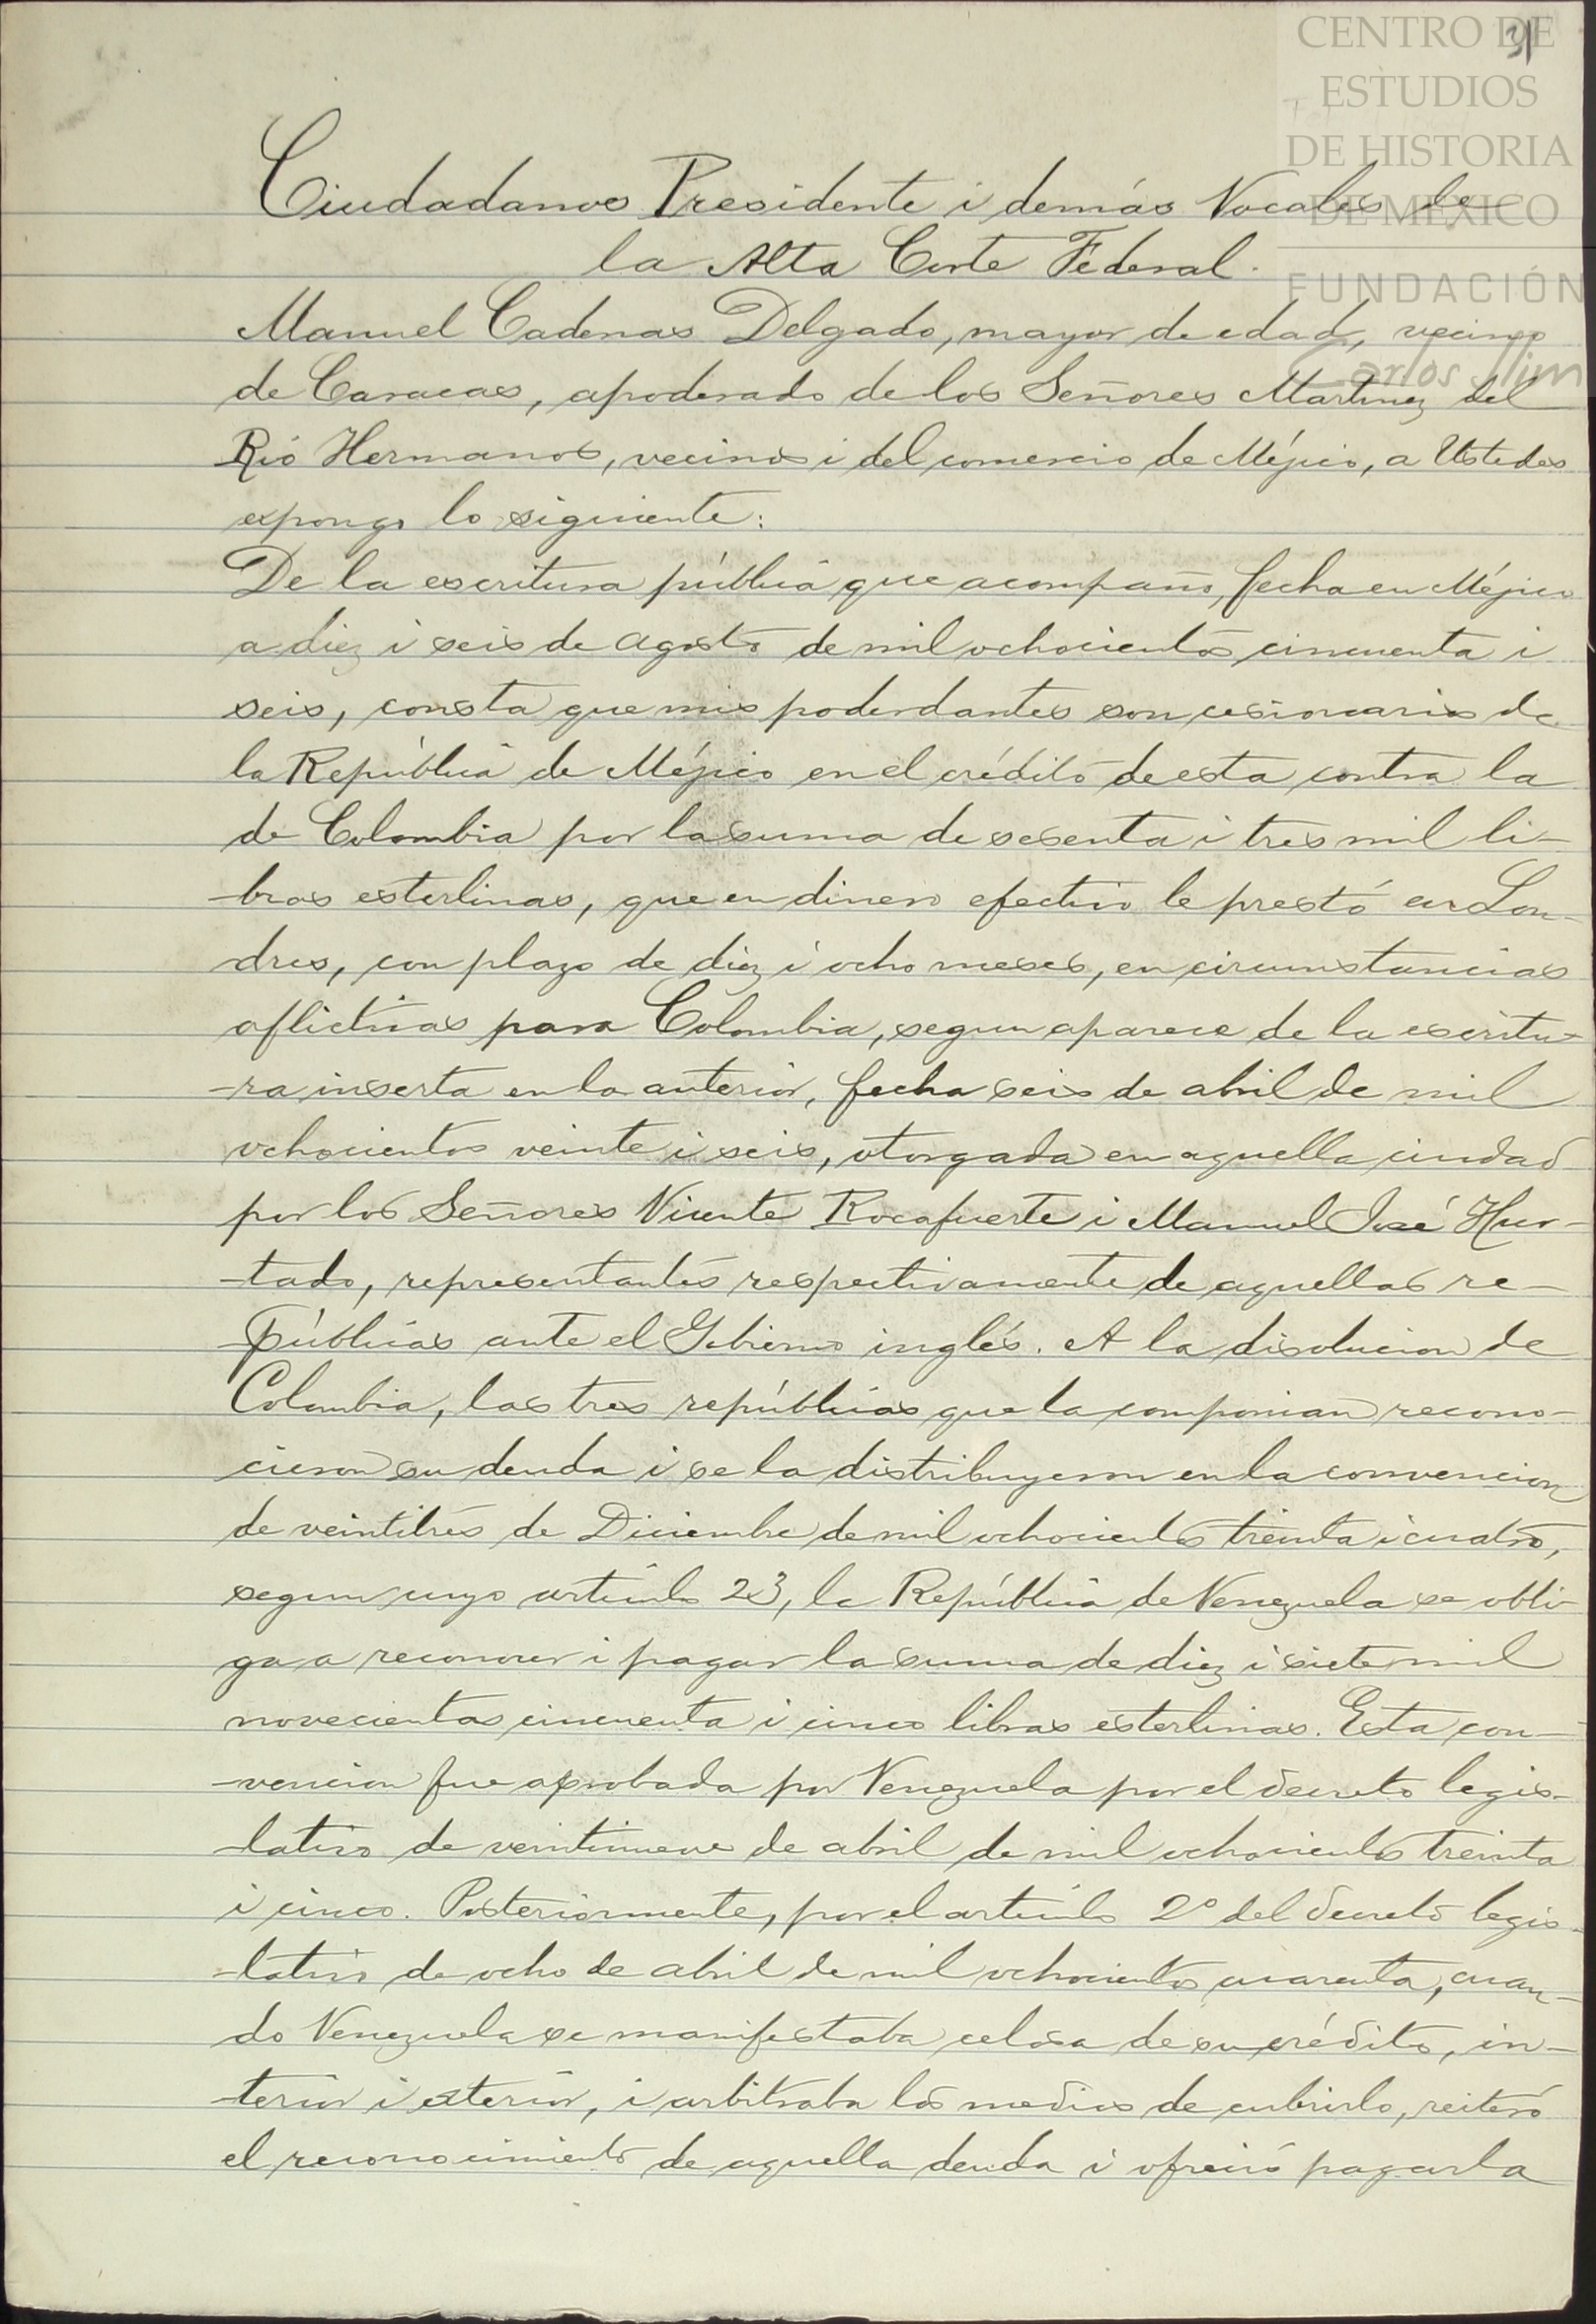 CENTRO DE
ESTUDIOS
DE HISTORIA
DE MÉXICO
FUNDACIÓN
Carlos Slim
31
Ciudadanos Presidente i demás Vocales de
la Alta Corte Federal.
Manuel Cadenas Delgado, mayor de edad, vecino
de Caracas, apoderado de los Señores Martinez del
Rió Hermanos, vecinos i del comercio de Méjico, a Ustedes
expongo lo siguiente:
De la escritura pública que acompaño, fecha en Méjico
a diez i seis de agosto de mil ochocientos cincuenta i
seis, consta que mis poderdantes son cesionarios de
la República de Méjico en el crédito de esta contra la
de Colombia por la suma de sesenta i tres mil li-
-bras esterlinas, que en dinero efectivo le prestó en Lon-
dres, con plazo de diez i ocho meses, en circunstancias
aflictivas para Colombia, segun aparece de la escritu-
-ra inserta en la anterior, fecha seis de abril de mil
ochocientos veinte i seis, otorgada en aquella ciudad
por los Señores Vicente Rocafuerte i Manuel José Hur-
-tado, representantes respectivamente de aquellas re-
-públicas ante el Gobierno inglés. A la disolucion de
Colombia, las tres repúblicas que la componian recono-
cieron su deuda i se la distribuyeron en la convencion
de veintitrés de Diciembre de mil ochocientos treinta i cuatro,
segun cuyo artículo 23, la República de Venezuela se obli-
ga a reconocer i pagar la suma de diez i siete mil
novecientas cincuenta i cinco libras esterlinas. Esta con-
-vencion fue aprobada por Venezuela por el decreto legis-
-lativo de veintinueve de abril de mil ochocientos treinta
i cinco. Posteriormente, por el artículo 2º del decreto legis-
-lativo de ocho de abril de mil ochocientos cuarenta, cuan-
do Venezuela se manifestaba celosa de su crédito, in-
-terior i exterior, i arbitraba los medios de cubrirlo, reiteró
el reconocimiento de aquella deuda i ofreció pagarla